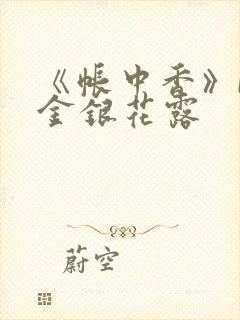 《帐中香》
金银花露
蔚空